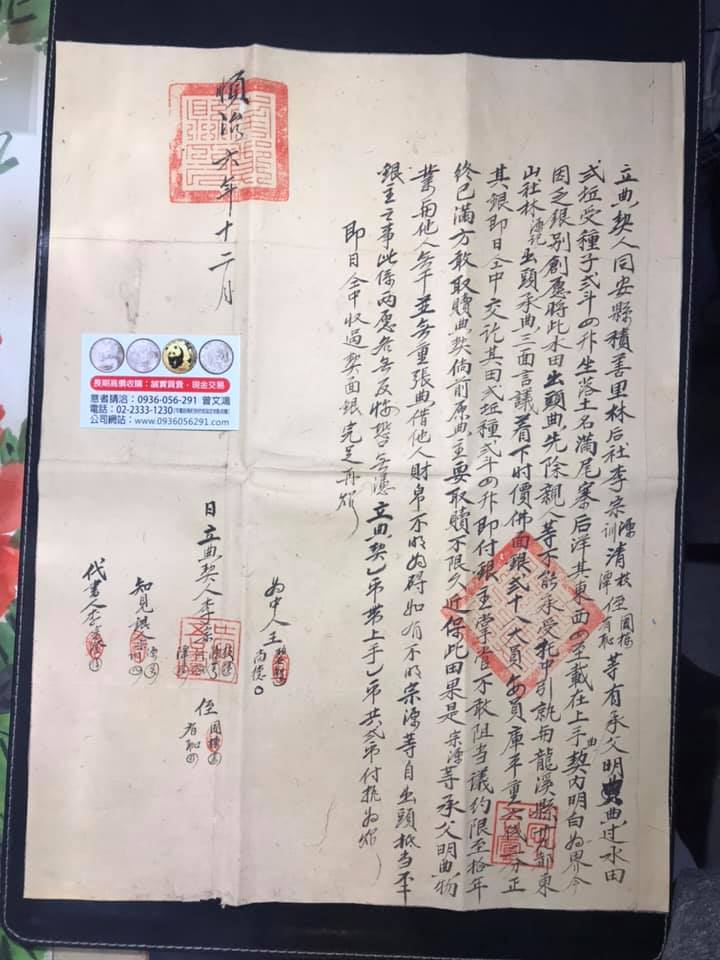 立典契人同安縣積善里林后社李宗源訓潭清枝侄國標有等有承父明典過水田
弍坵受種子弍斗四升坐落土名滿尾寨后洋其東西四至載在上手典契內明白為界今
因乏銀別創愿將此水田出頭典先除親人等不能承受托中引就与龍溪縣廿九都東
山社林海記出頭承典三面言議着下時價佛面銀弍十八大員每員庫平重六錢分正
其銀即日仝中交訖其田弍坵種弍斗四升即付銀主掌管不敢阻当議約限至拾年
終已滿方敢取贖典契倘前原典主要取贖不限久近保此田果是宗源等承父明典物
業与他人無干並無重張典借他人財帛不明為碍如有不明宗源等自出頭抵当不干
銀主之事此係兩愿各無反悔恐無憑立典契乙帋帶上手乙帋共弍帋付执為炤
即日仝中收過契面銀完足再炤
為中人王尚德
順治六年十二月
日立典契人李宗
侄國標有
知見銀人宗訓
代書人李
長期高價收購：誠實買賣．現金交易
意者請洽：0936-056-291 曾文鴻
電話：02-2333-1230
公司網站：www.0936056291.com